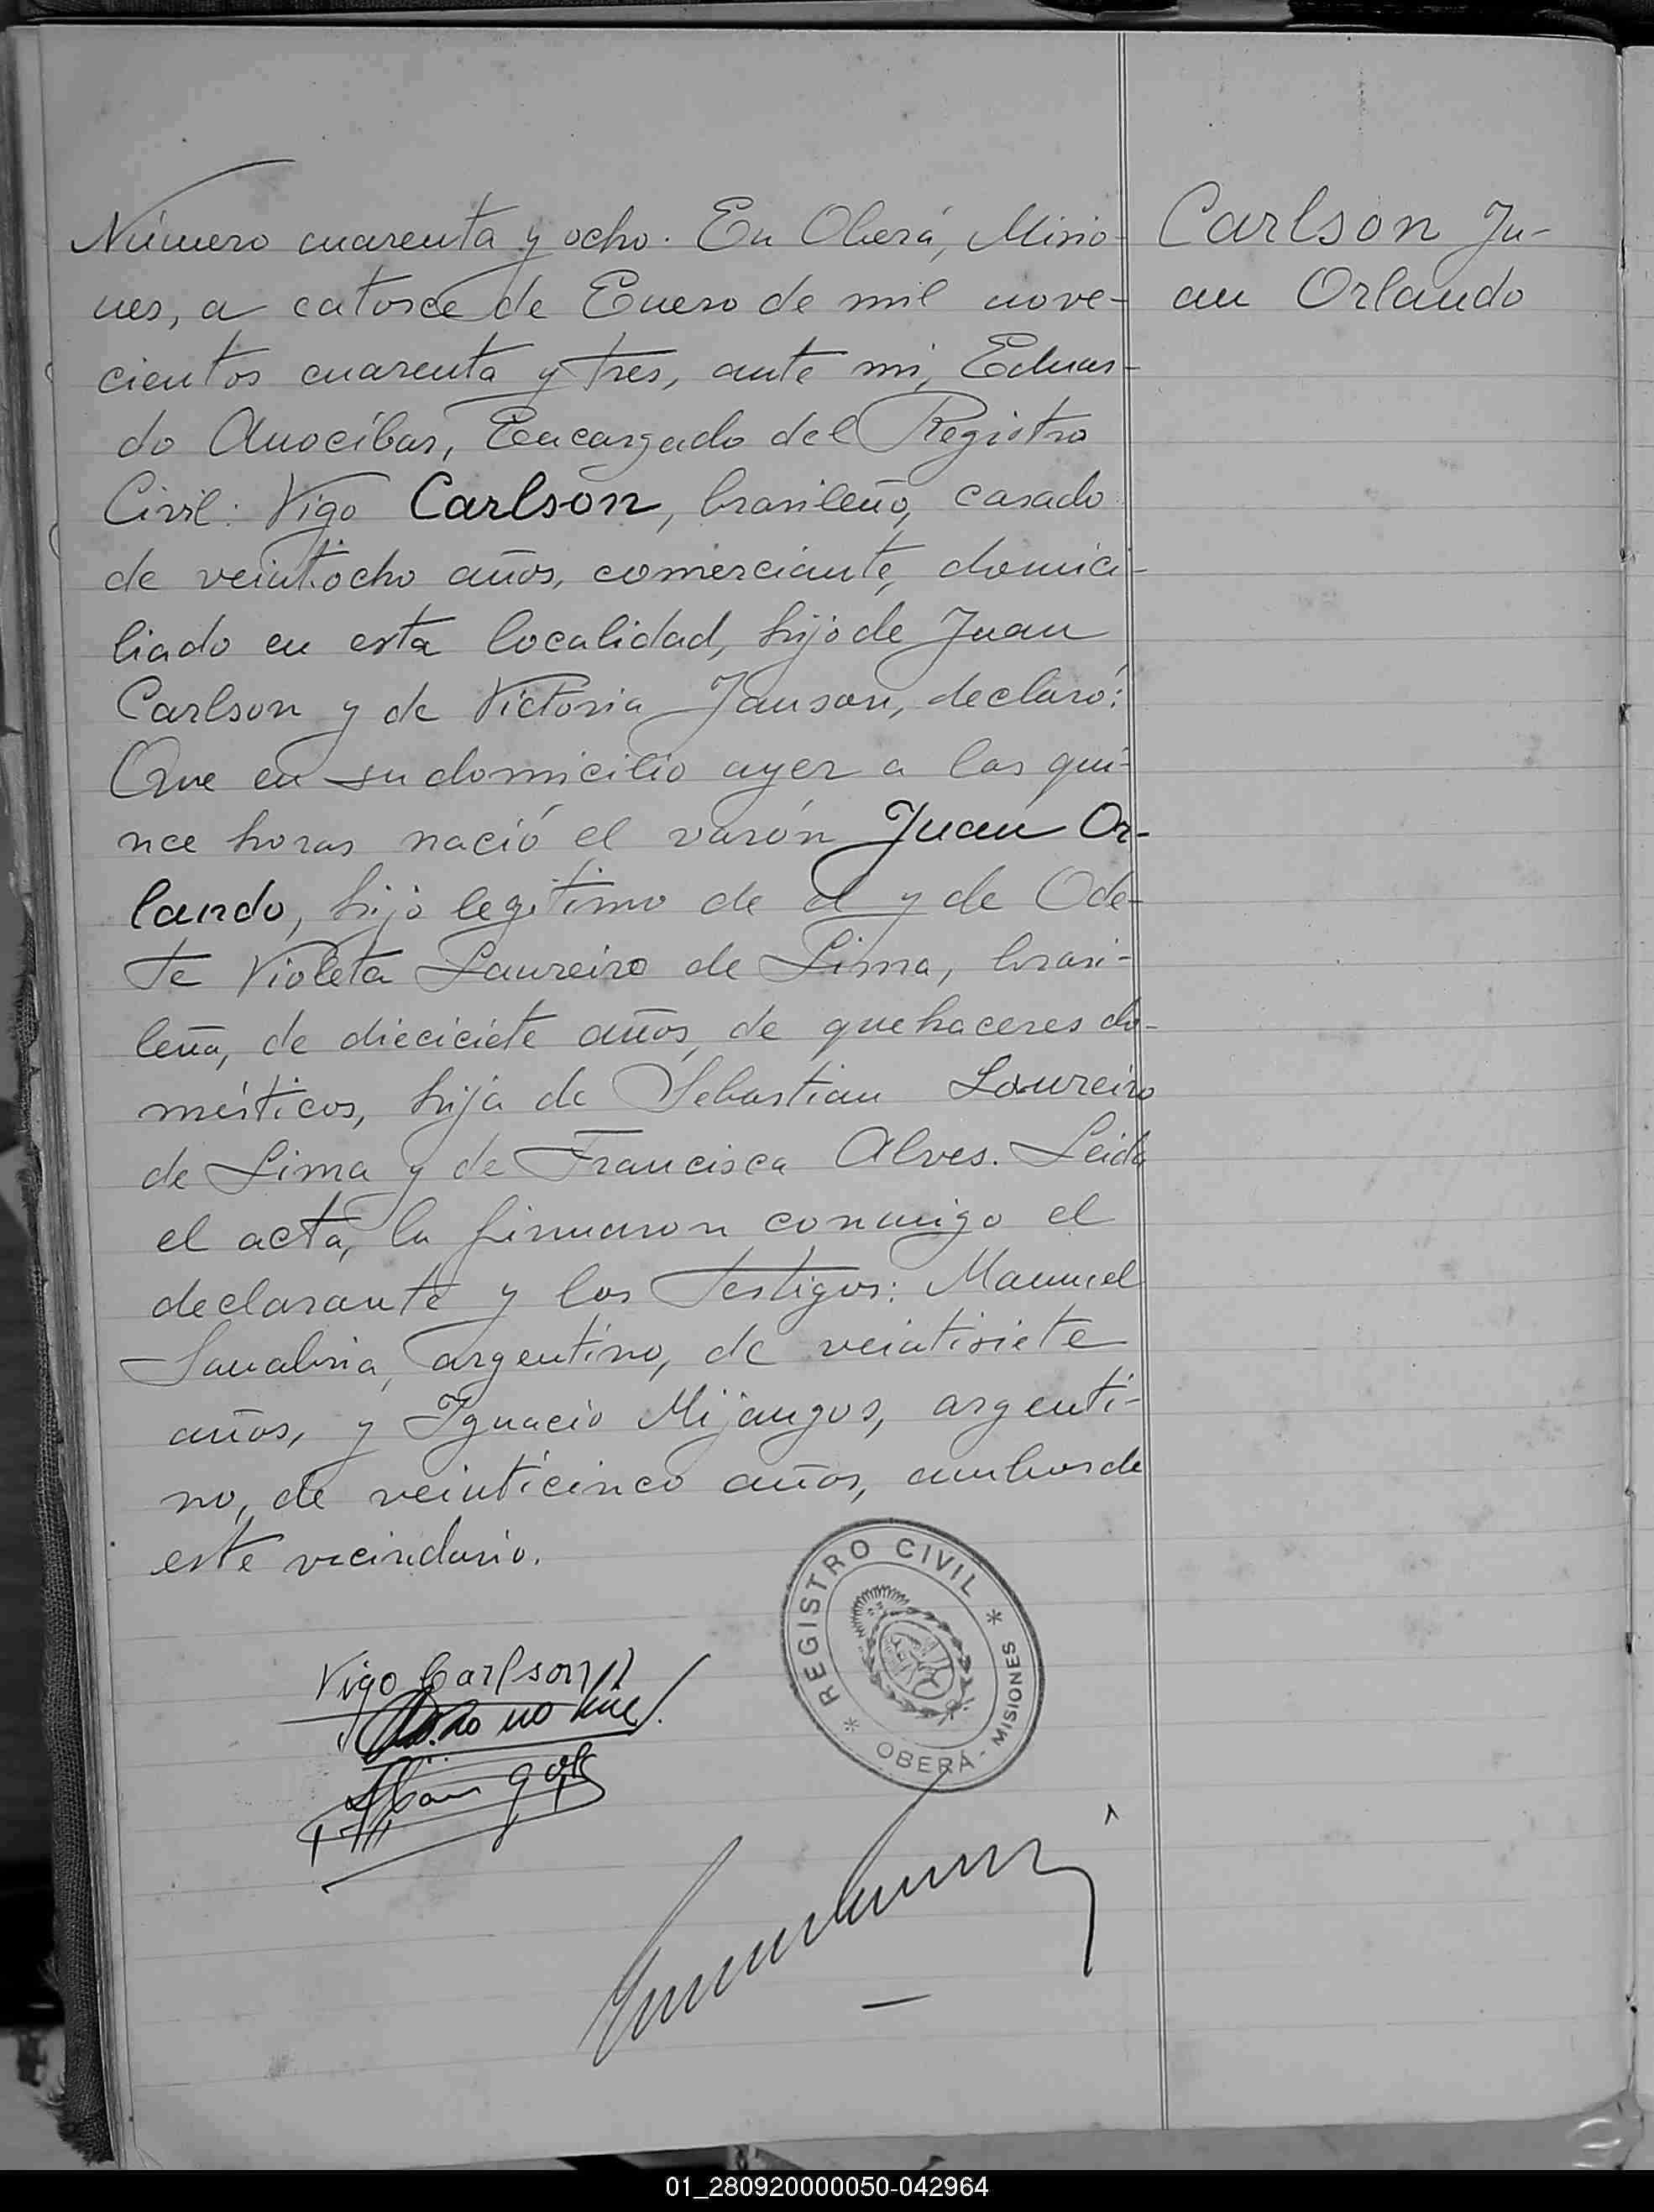 Número cuarenta y ocho. En Oberá, Misio-
nes, a catorce de Enero de mil nove-
cientos cuarenta y tres, ante mi, Eduar-
do Anocíbar, Encargado del Registro
Civil: Vigo Carlson, brasileño, casado
de veintiocho años, comerciante, domici-
liado en esta localidad, hijo de Juan
Carlson y de Victoria Janson, declaró:
Que en su domicilio ayer a las qui-
nce horas nació el varón Juan Or-
lando, hijo legítimo de él y de Ode-
te Violeta Laureiro de Lima, brasi-
leña, de dieciciete años, de quehaceres do-
mésticos, hija de Sebastian Loureiro
de Lima y de Francisca Alves. Leida
el acta, la firmaron conmigo el
declarante y los testigos: Manuel
Sanabria, argentino, de veintisiete
años, y Ignacio Mijangos, argenti-
no, de veinticinco años, ambos de
este vecindario.
Carlson Ju-
an Orlando
Vigo Carlson
REGISTRO CIVIL
OBERÁ - MISIONES
01_280920000050-042964